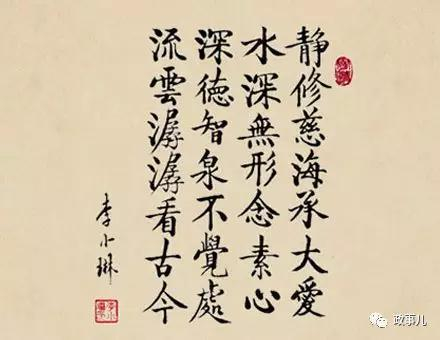 静修慈海承大愛
水深無形念素心
深徳智泉不覺處
流雲潺潺看古今
李小琳
政事儿